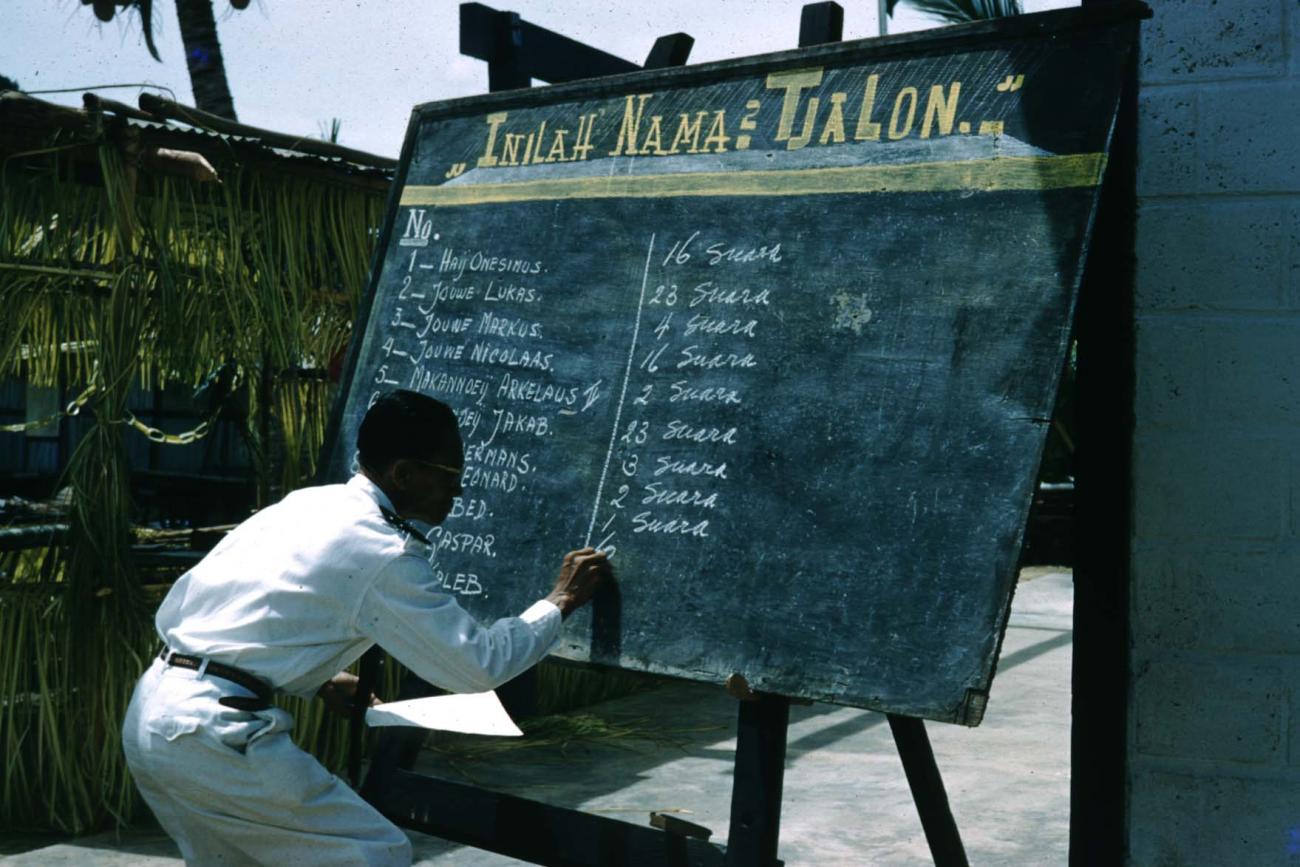 „Inilah Nama2 Tjalon.”
No.
1 – Haij Onesimus. 16 Suara
2 – Jouwe Lukas. 23 Suara
3 – Jouwe Markus. 4 Suara
4 – Jouwe Nicolaas. 16 Suara
5 – Makannoeij Arkelaus II 2 Suara
Jakab. 23 Suara
ermans. 3 Suara
eonard. 2 Suara
bed. 1 Suara
Gaspar. 6
aleb.